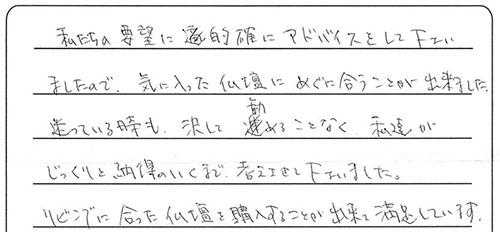 私たちの要望に適的確にアドバイスをして下さい
ましたので、気に入った仏壇にめぐに合うことが出来ました。
迷っている時も、決して勧めることなく、私達が
じっくりと納得のいくまで、考えさせて下さいました。
リビングに合った仏壇を購入することが出来て満足しています。